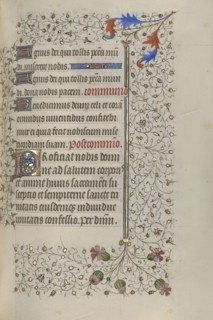 Agnus dei qui tollis pccā mūdi
di. miserere nobis.
Agnus dei qui tollis pccā mun
di. dona nobis pacem. communio
Benedicimus deum celi et cora
omnibus viventibus confitebi
mur ei quia fecit nobiscum mise
ricordiam suam. Postcommunio.
Proficiat nobis domi
ne ad salutem corporis
et anime huius sacramēti su
sceptio et sempiterne sancte tri
nitatis eiusdemque individue
unitatis confessio. per dnm.